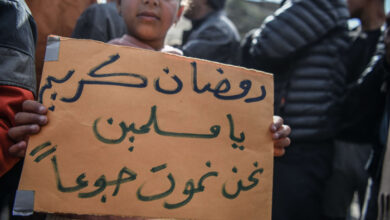 رمضان كريم
يا مسلمين
نحن نموت جوعاً !!